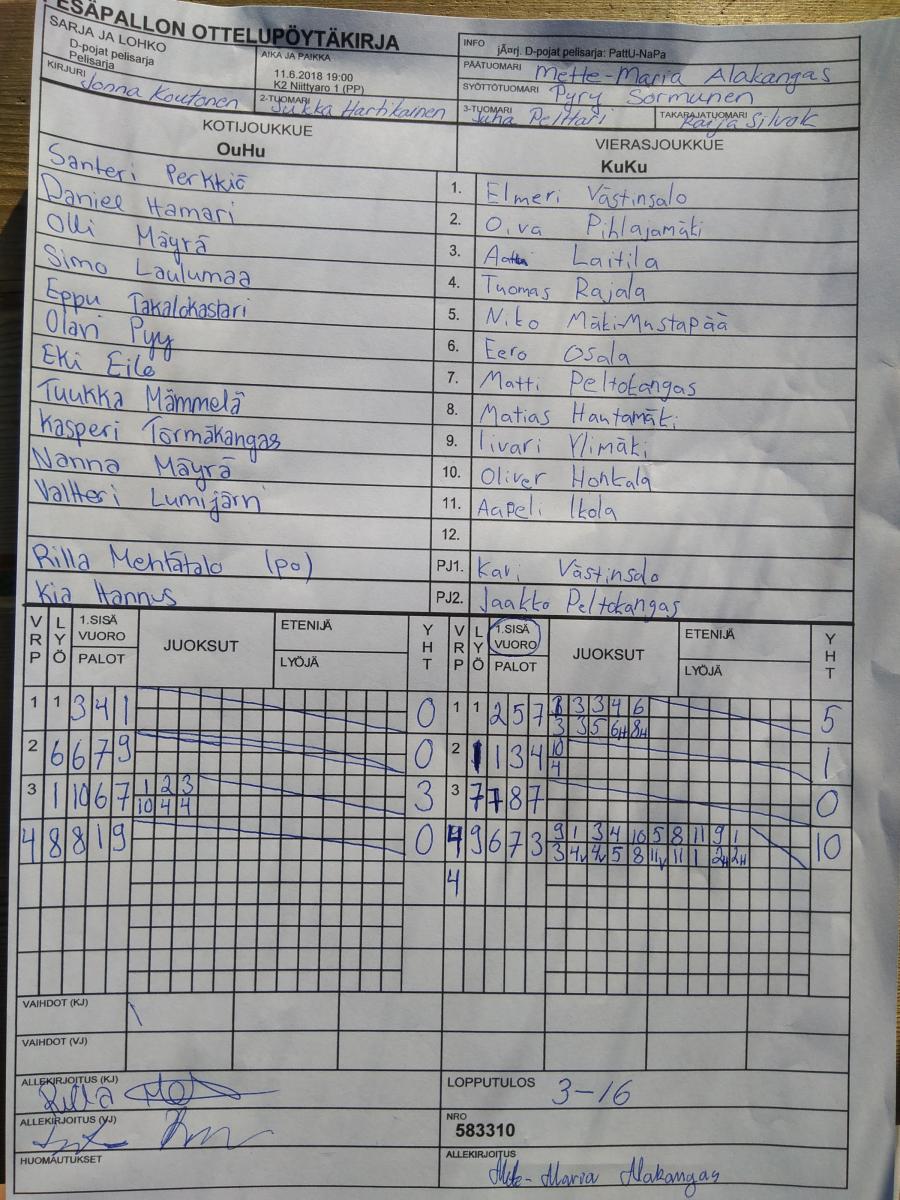 ESÄPALLON OTTELUPÖYTÄKIRJA
SARJA JA LOHKO
D-pojat pelisarja
Pelisarja
AIKA JA PAIKKA
11.6.2018 19:00
K2 Niittyaro 1 (PP)
INFO
jÃ¤rj. D-pojat pelisarja: PattU-NaPa
PÄÄTUOMARI Mette-Maria Alakangas
SYÖTTÖTUOMARI Pyry Sormunen
KIRJURI Jonna Koutonen
2-TUOMARI Jukka Hartikainen
3-TUOMARI Juha Pelttari
TAKARAJATUOMARI Raija
KOTIJOUKKUE
OuHu
VIERASJOUKKUE
KuKu
Santeri Perkkiö 1. Elmeri Västinsalo
Daniel Hamari 2. Oiva Pihlajamäki
Olli Mäyrä 3. Laitila
Simo Laulumaa 4. Tuomas Rajala
Eppu Takalokastari 5. Niko Mäki-Mustapää
Olavi Pyy 6. Eero Osala
Eki Eilo 7. Matti Peltokangas
Tuukka Mämmelä 8. Matias Hautamäki
Kasperi Törmäkangas 9. Iivari Ylimäki
Nanna Mäyrä 10. Oliver Honkala
Valtteri Lumijärvi 11. Aapeli Ikola
12.
Rilla Mehtätalo (po) PJ1. Kari Västinsalo
Kia Hannus PJ2. Jaakko Peltokangas
VRP LYÖ 1.SISÄ VUORO PALOT JUOKSUT ETENIJÄ LYÖJÄ YHT VRP LYÖ 1.SISÄ VUORO PALOT JUOKSUT ETENIJÄ LYÖJÄ YHT
1 1 3 4 1 0 1 1 2 5 7 3 3 4 6 5
3 3 5 6H 8H
2 6 6 7 9 0 2 1 3 4 10 1
4
3 1 10 6 7 1 2 3 3 3 7 7 8 7 0
10 4 4
4 8 8 1 9 0 4 9 6 7 3 9 1 3 4 10 5 8 11 9 1 10
3 4V 4V 5 8 11V 11 1 2H 2H
4
VAIHDOT (KJ)
VAIHDOT (VJ)
ALLEKIRJOITUS (KJ) Rilla
LOPPUTULOS 3-16
ALLEKIRJOITUS (VJ)
NRO
583310
HUOMAUTUKSET
ALLEKIRJOITUS
Mette-Maria Alakangas